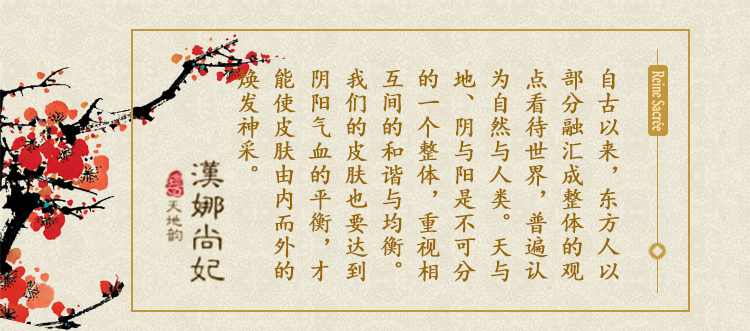 Reine Sacrée
自古以来，东方人以
部分融汇成整体的观
点看待世界，普遍认
为自然与人类。天与
地、阴与阳是不可分
的一个整体，重视相
互间的和谐与均衡。
我们的皮肤也要达到
阴阳气血的平衡，才
能使皮肤由内而外的
焕发神采。
漢娜尚妃
天地韵